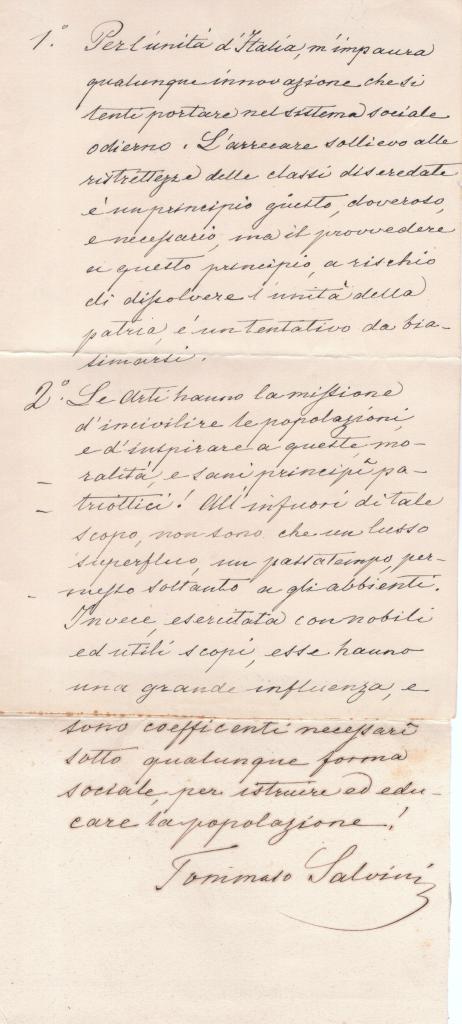 1.° Per l'unità d'Italia, m'impaura
qualunque innovazione che si
tenti portare nel sistema sociale
odierno. L'arrecare sollievo alle
ristrettezze delle classi diseredate
é un principio giusto, doveroso,
e necessario, ma il provvedere
a questo principio, a rischio
di dissolvere l'unità della
patria, é un tentativo da bia-
simarsi.
2.° Le Arti hanno la missione
d'incivilire le popolazioni,
e d'inspirare a queste, mo-
ralità, e sani principî pa-
triottici! All'infuori di tale
scopo, non sono che un lusso
superfluo, un passatempo, per-
messo soltanto a gli abbienti.
Invece, esercitata con nobili
ed utili scopi, esse hanno
una grande influenza, e
sono coefficenti necessarî
sotto qualunque forma
sociale, per istruire ed edu-
care la popolazione!
Tommaso Salvini